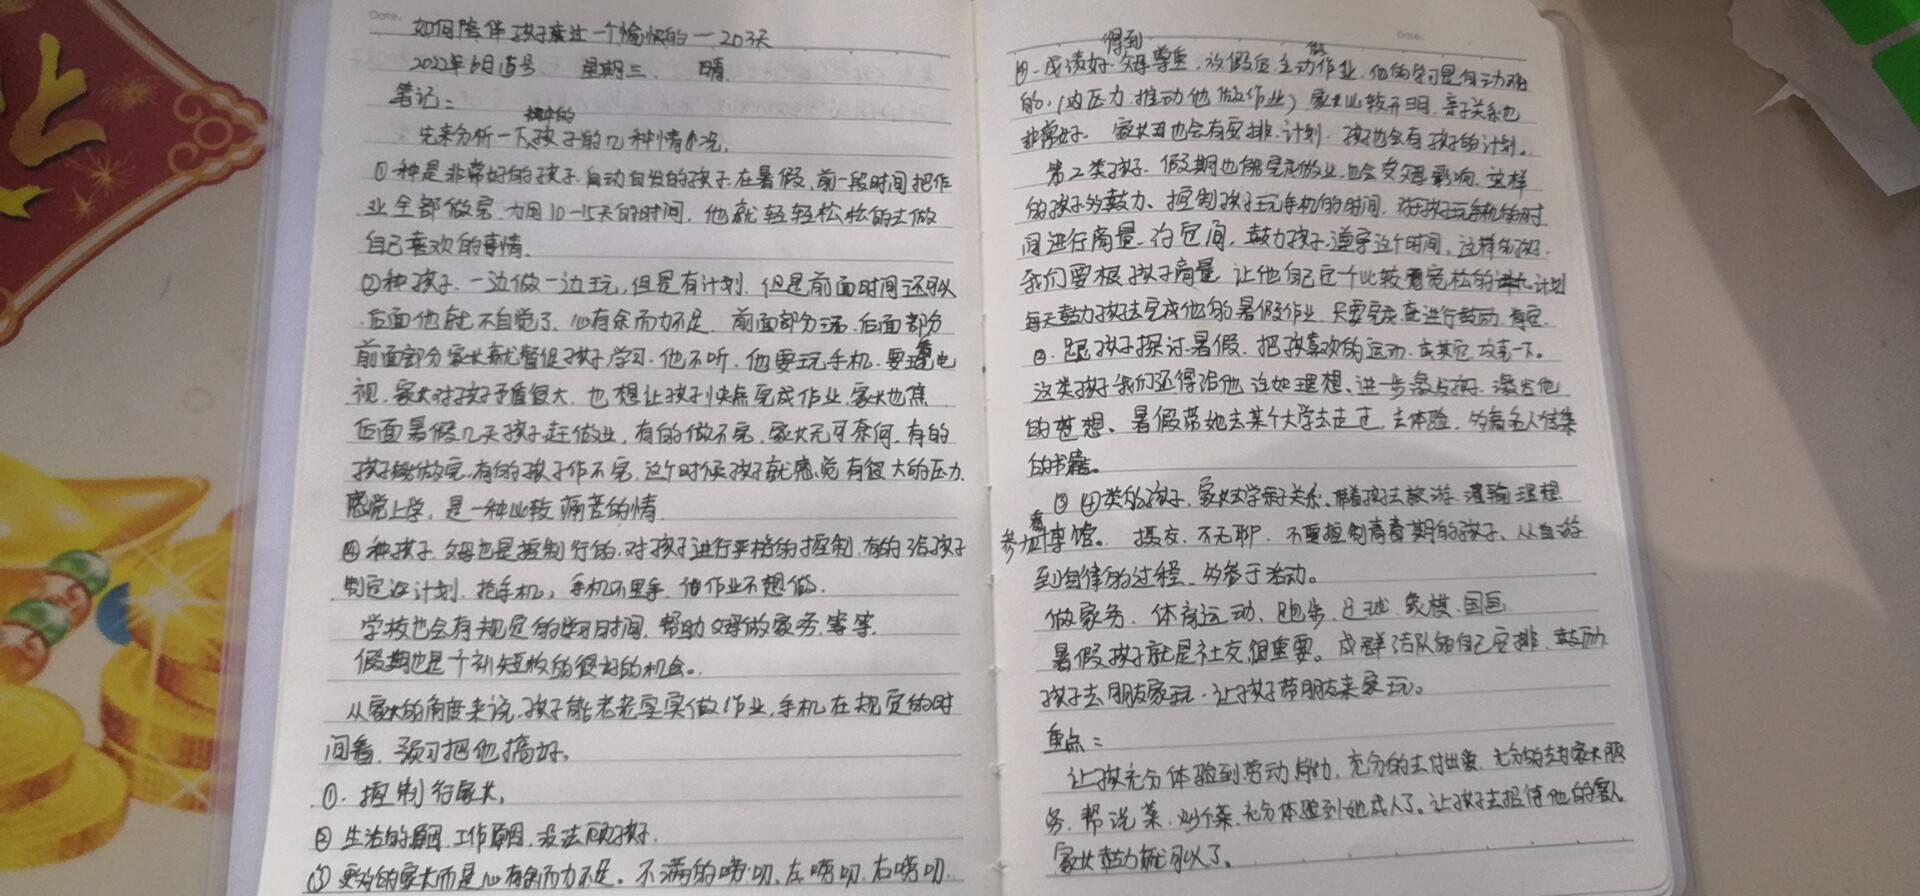 Date.
如何陪伴孩子度过一个愉快的一203天
2022年6月15号 星期三、 晴.
笔记：
先来分析一下孩子的几种情况，
①种是非常好的孩子.自动自发的孩子.在暑假,前一段时间把作
业全部做完.力用10一15天的时间, 他就轻轻松松的去做
自己喜欢的事情.
②种孩子.一边做一边玩,但是有计划.但是前面时间还可以
.后面他就不自觉了.心有余而力不足. 前面部分 后面部分
前面部分家长就督促孩子学习.他不听.他要玩手机.要看电
视.家长对孩子矛盾很大.也想让孩子快点完成作业.家长也焦
后面暑假几天孩子赶做业,有的做不完.家长无可奈何.有的
孩子 做完.有的孩子作不完.这个时候孩子就感觉有很大的压力.
感觉上学,是一种比较痛苦的情.
④种孩子.父母也是控制行的.对孩子进行严格的控制.有的给孩子
制定 计划.抢手机, 手机不里手.他作业不想做.
学校也会有规定的学习时间.帮助父母做家务.等等.
假期也是个补短板的很好的机会。
从家长的角度来说.孩子能老老实实做作业,手机在规定的时
间看. 预习把他搞好。
①.控制行家长,
② 生活的原因.工作原因.没法顾孩子.
③ 更多的家长而是心有余而力不足。不满的唠叨.左唠叨.右唠叨.
Date.
④一成绩好.得到父母尊重.放假后.主动做作业.他的学习是自动
的.(内压力.推动他做作业)家长比较开明.亲子关系也
非常好. 家长也会有安排.计划.孩子也会有孩子的计划。
第二类孩子.假期也能完成做业.也会受父母影响.这样
的孩子多鼓力、控制孩子玩手机的时间.对孩子玩手机的时
间进行商量.约定间,鼓力孩子.遵守这个时间.这样的孩子.
我们要根孩子商量.让他自己定个比较宽松的计划
每天鼓力孩子去完成他的暑假作业.只要完成就进行鼓励.肯定.
②.跟孩子探讨暑假.把孩喜欢的运动. 一下。
这类孩子我们还得给他 理想、进一步激发孩子.激发他
的梦想、暑假带她去某个大学去走走.去体验.多看名人传集
的书籍。
③ ④类的孩子.家长去学亲子关系.带着孩子去旅游.灌输理想
参加看博馆。 朋友.不无聊.不要控制青春期的孩子、从自游
到自律的过程.多参于活动。
做家务.体育运动、跑步. 球.象棋.国画
暑假孩子就是社交很重要。成群结队的自己安排.鼓励
孩子去朋友家玩.让孩子带朋友来家玩。
重点：
让孩充分体验到劳动 ,充分的去付出爱.充分的去为家长服
务.帮洗菜.炒个菜.充分体验到她成人了。让孩子去招待他的客人
家长鼓力就可以了。